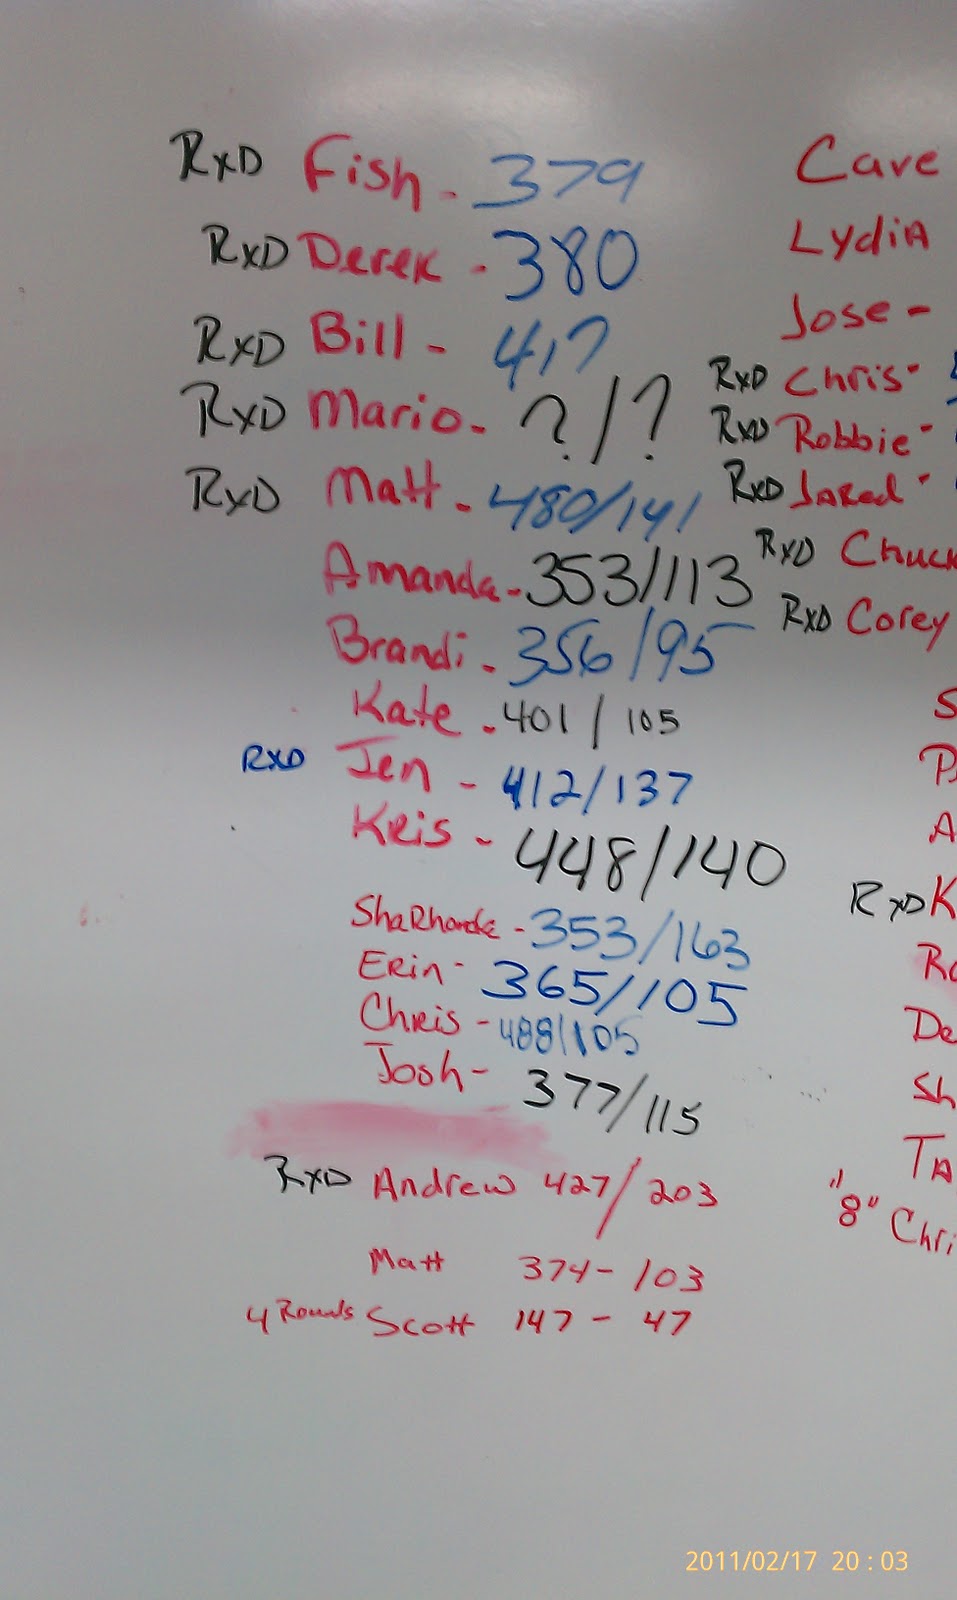 RxD Fish - 379
RxD Derek - 380
RxD Bill - 417
RxD Mario - ?/?
RxD Matt - 480/141
Amanda - 353/113
Brandi - 356/95
Kate - 401/105
RXD Jen - 412/137
Kris - 448/140
ShaRhonda - 353/163
Erin - 365/105
Chris - 488/105
Josh - 377/115
RxD Andrew 427/203
Matt 374 - 103
4 Rounds Scott 147 - 47
Cave
Lydia
Jose -
RxD Chris -
RxD Robbie -
RxD Jared -
RxD Chuck
RxD Corey
S
P
A
RxD K
Ro
De
Sh
TA
"8" Chri
2011/02/17 20:03